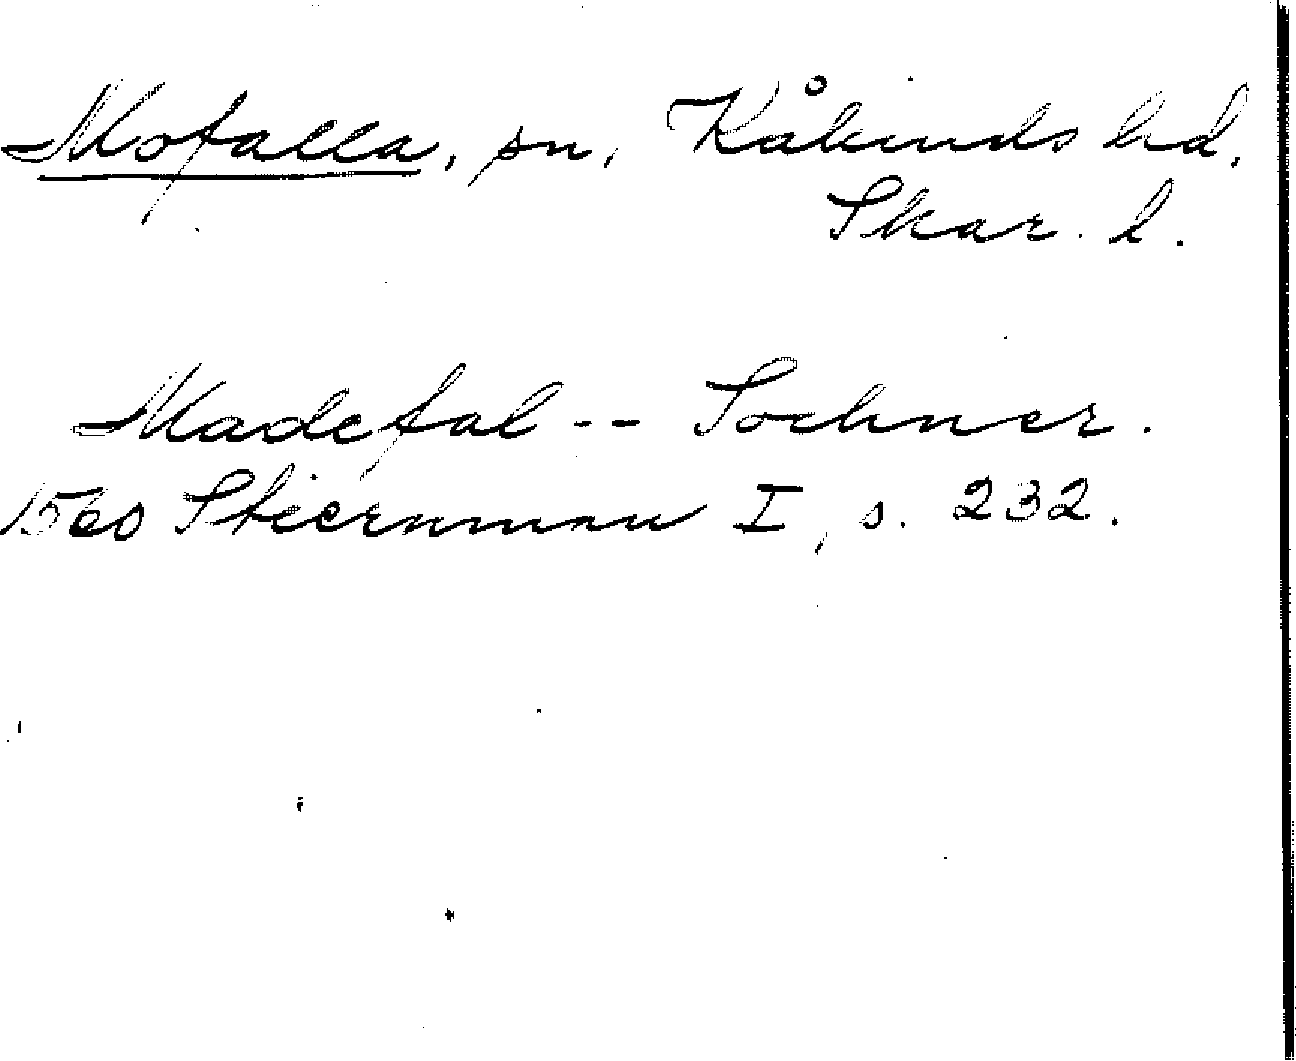 Mofalla, sn, Kåkinds hd.
Skar. l.
Madefal -- Sochner.
1560 Stiernman I, s. 232.